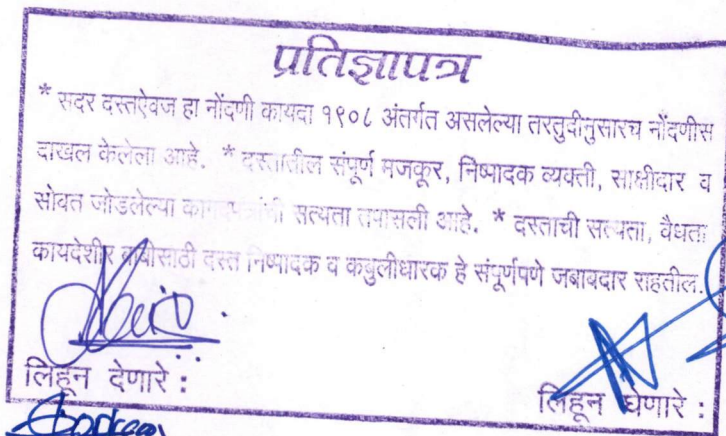 प्रतिज्ञापत्र
* सदर दस्तऐवज हा नोंदणी कायदा १९०८ अंतर्गत असलेल्या तरतुदीनुसारच नोंदणीस
दाखल केलेला आहे. * दस्तातील संपूर्ण मजकूर, निष्पादक व्यक्ती, साक्षीदार व
सोबत जोडलेल्या कागदपत्रांची सत्यता तपासली आहे. * दस्ताची सत्यता, वैधता
कायदेशीर बाबीसाठी दस्त निष्पादक व कबुलीधारक हे संपूर्णपणे जबाबदार राहतील.
लिहून देणारे :
लिहून घेणारे :